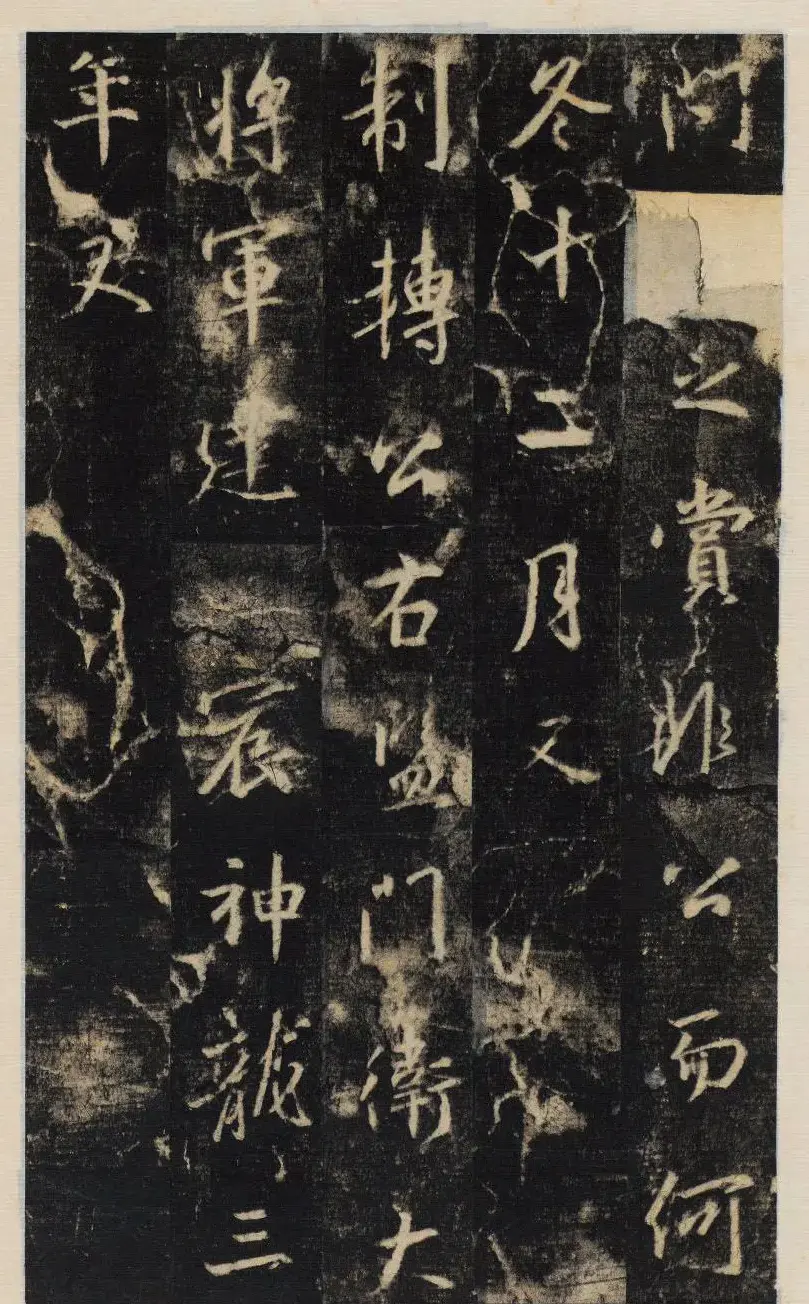 門之賞非公而何
冬十二月又
制轉公右監門衛大
將軍建宸神龍三
年又